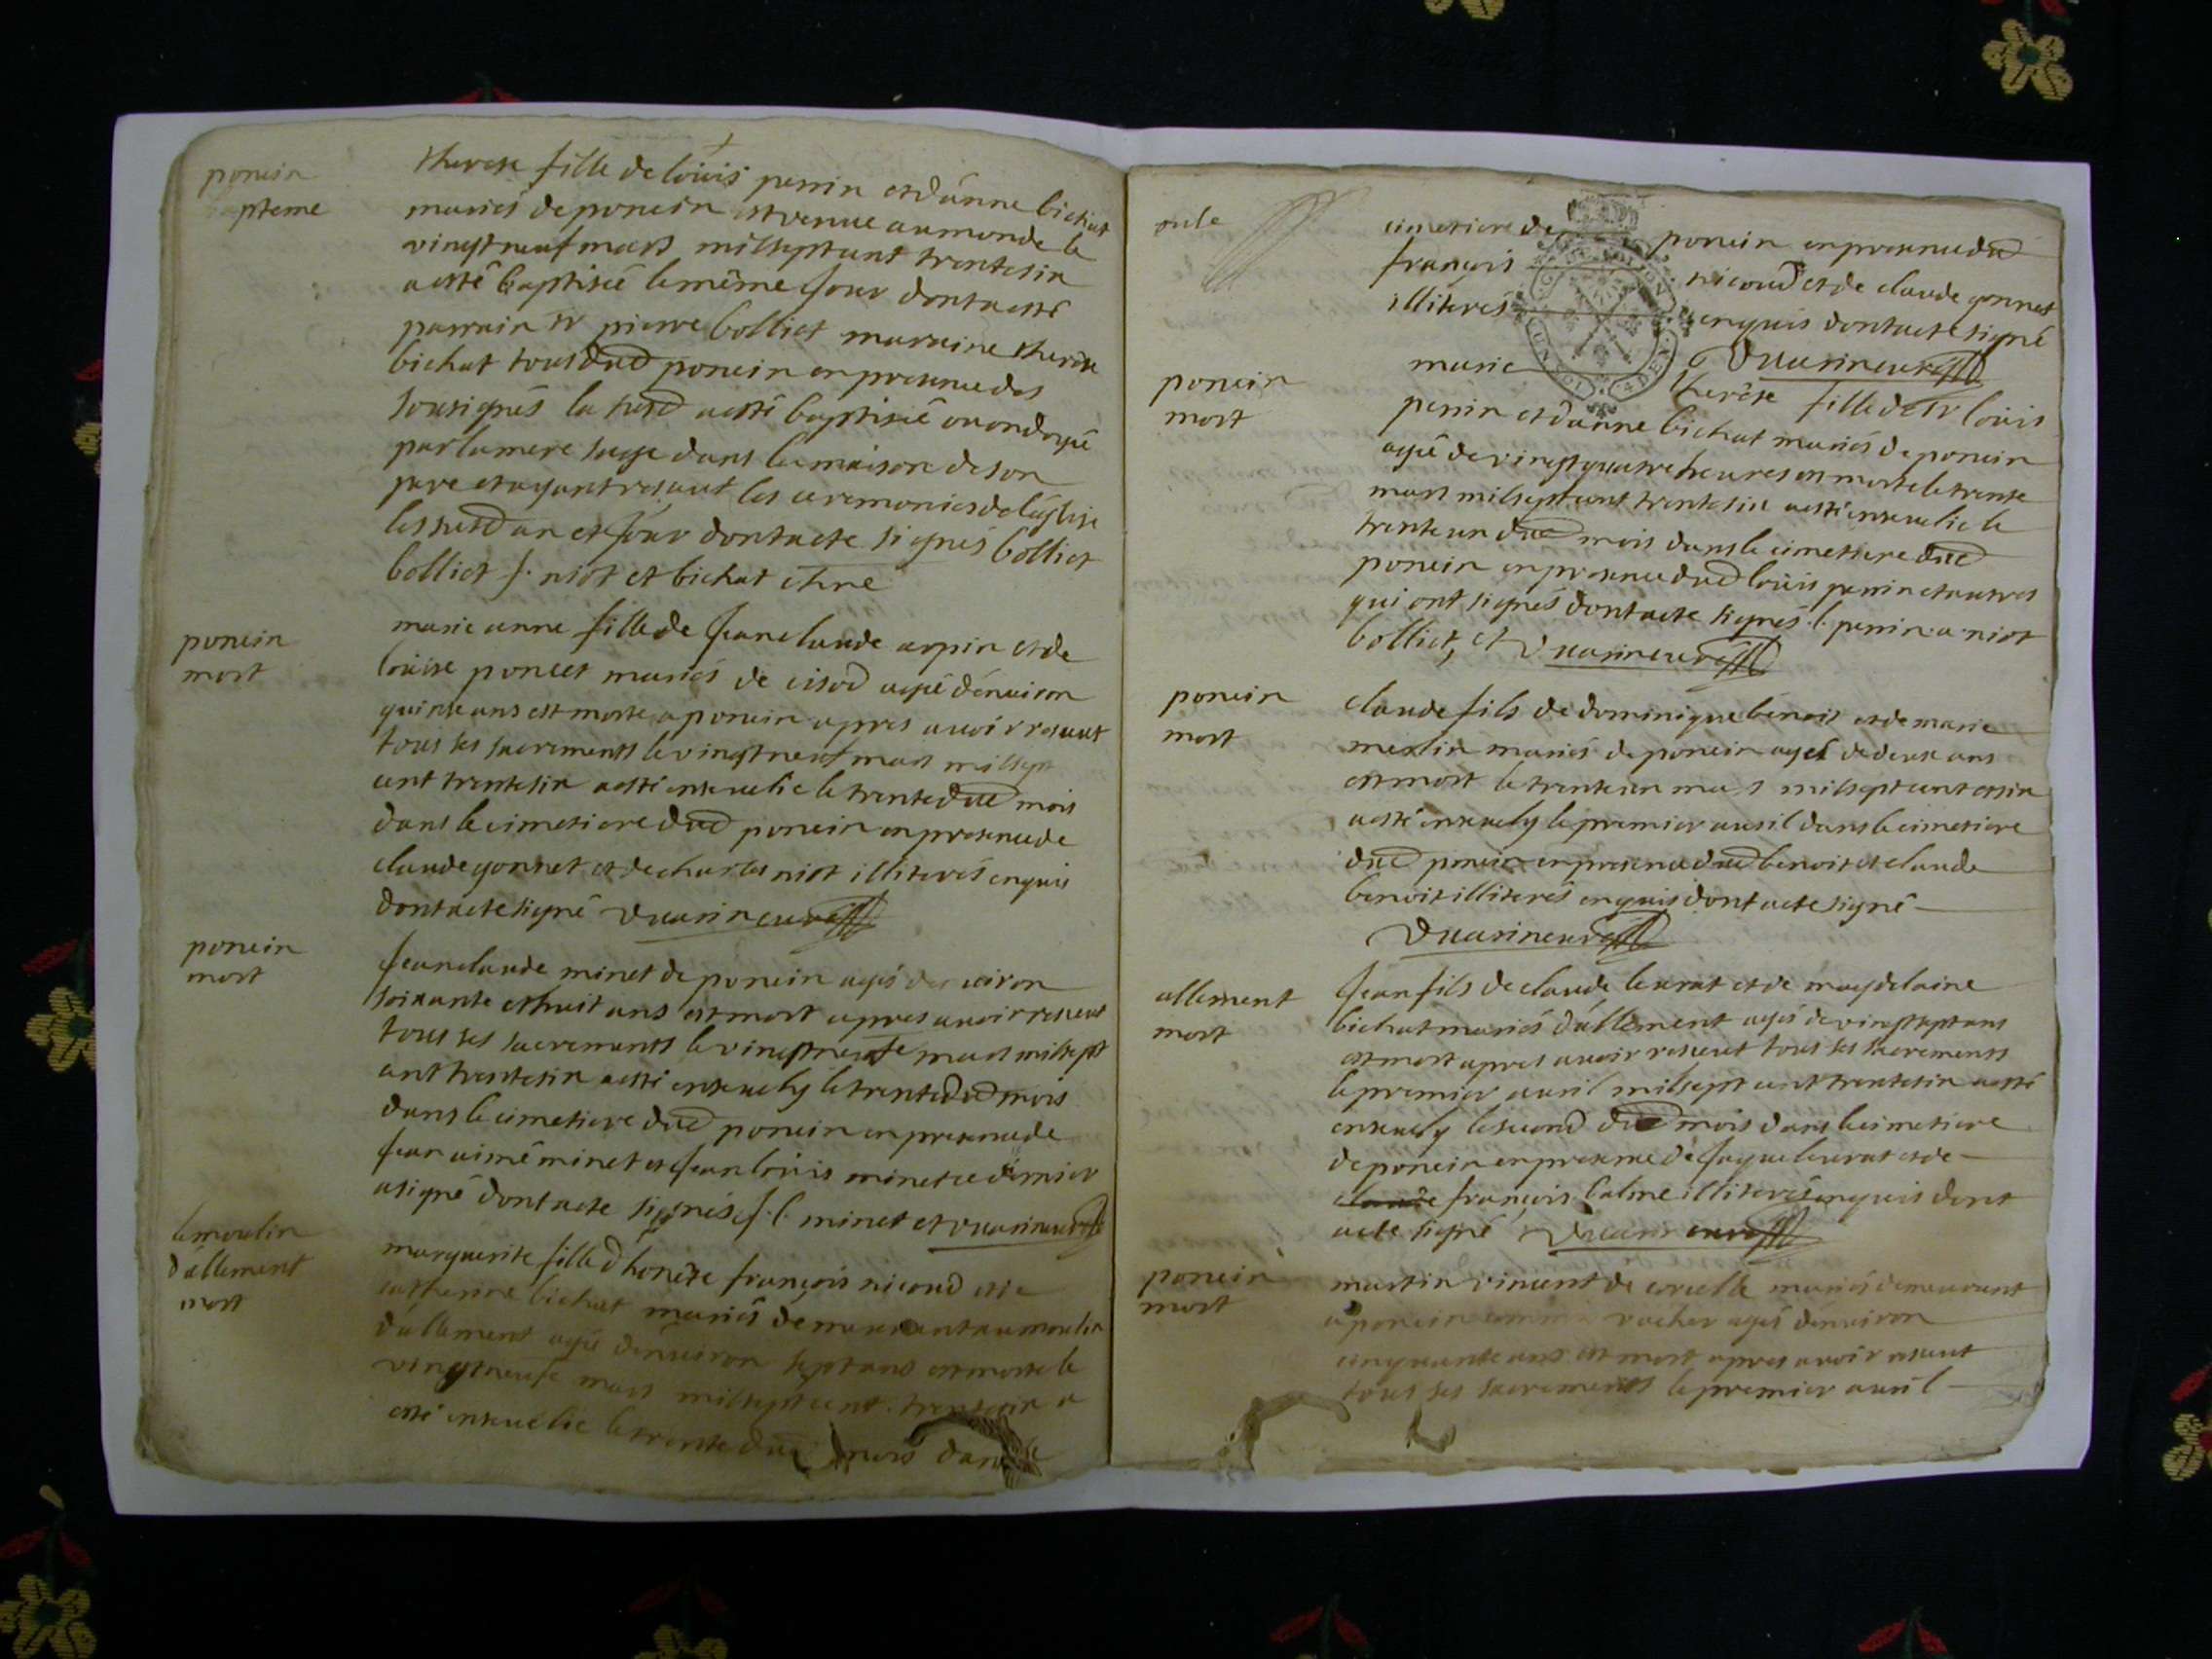 poncin
bapteme
therese fille de loüis perrin et d'anne bichat
mariés de poncin est venue au monde le
vingt neuf mars mil sept cent trente six
a esté baptisée le même jour dont a esté
parrain sr pierre bolliet maraine therese
bichat tous dud poncin en presence des
sousignés la susd a esté baptisée ou ondoyé
par la mere sage dans la maison de son
pere et ayant reseut les ceremonies de l'eglise
les susd an et jour dont acte signés bolliet
bolliet j. niot et bichat
poncin
mort
marie anne fille de jean claude arpin et de
loüise poncet mariés de cisod agée d'enuiron
quinze ans est morte a poncin apres auoir reseut
tous ses sacrements le vingt neuf mars mil sept
cent trente six a esté enseuelie le trente dud mois
dans le cimetiere dud poncin en presence de
claude gonnet et de charles niot illiterés enquis
dont acte signé Duarin curé
poncin
mort
jean claude minet de poncin agé d'enuiron
soixante et huit ans est mort apres auoir reseut
tous ses sacrements le vingt neufe mars mil sept
cent trente six a esté enseuely le trente dud mois
dans le cimetiere dud poncin en presence de
jean aimé minet et jean loüis minet ce dernier
a signé dont acte signés j. l. minet et Duarin curé
le moulin
d'allement
mort
marguerite fille d'honète françois nicoud et de
catherine bichat mariés demeurant au moulin
d'allement agée d'enuiron sept ans est morte le
vingt neufe mars mil sept cent trente six a
esté enseuelie le trente dud mois dans le
cimetiere de poncin en presence dud
françois nicoud et de claude gonnet
illiterés enquis dont acte signé
Duarin curé
poncin
mort
marie therèse fille de sr loüis
perrin et d'anne bichat mariés de poncin
agée de vingt quatre heures est morte le trente
mars mil sept cent trente six a esté enseuelie le
trente un dud mois dans le cimetiere dud
poncin en presence dud loüis perrin et autres
qui ont signés dont acte signés l. perrin a. niot
bolliet, et Duarin curé
poncin
mort
claude fils de dominique benoit et de marie
merlin mariés de poncin agé de deux ans
est mort le trente un mars mil sept cent et six
a esté enseuely le premier auril dans le cimetiere
dud poncin en presence dud benoit et claude
benoit illiterés enquis dont acte signé
Duarin curé
allement
mort
jean fils de claude leurat et de magdelaine
bichat mariés d'allement agé de vingt sept ans
est mort apres auoir reseut tous ses sacrements
le premier auril mil sept cent trente six a esté
enseuely le second dud mois dans le cimetiere
de poncin en presence de jaque leurat et de
françois balme illiterés enquis dont
acte signé Duarin curé
poncin
mort
martin vincent de mariés demeurant
a poncin vacher agé d'enuiron
cinquante ans est mort apres auoir reseut
tous ses sacrements le premier auril